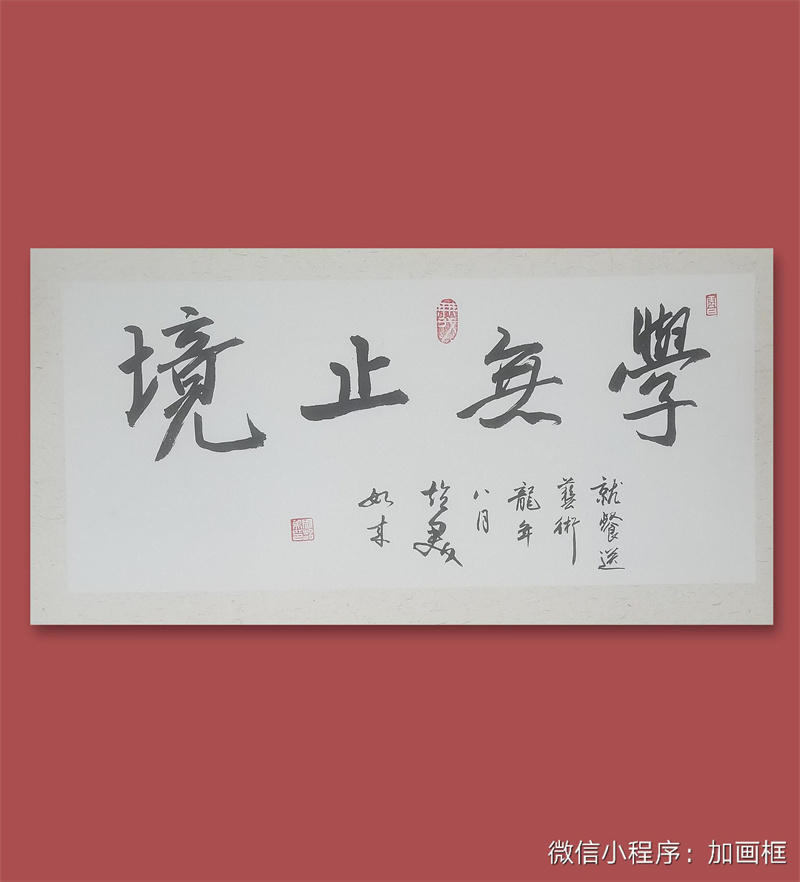 學無止境
就餐送
藝術
龍年
八月
如来
微信小程序：加画框